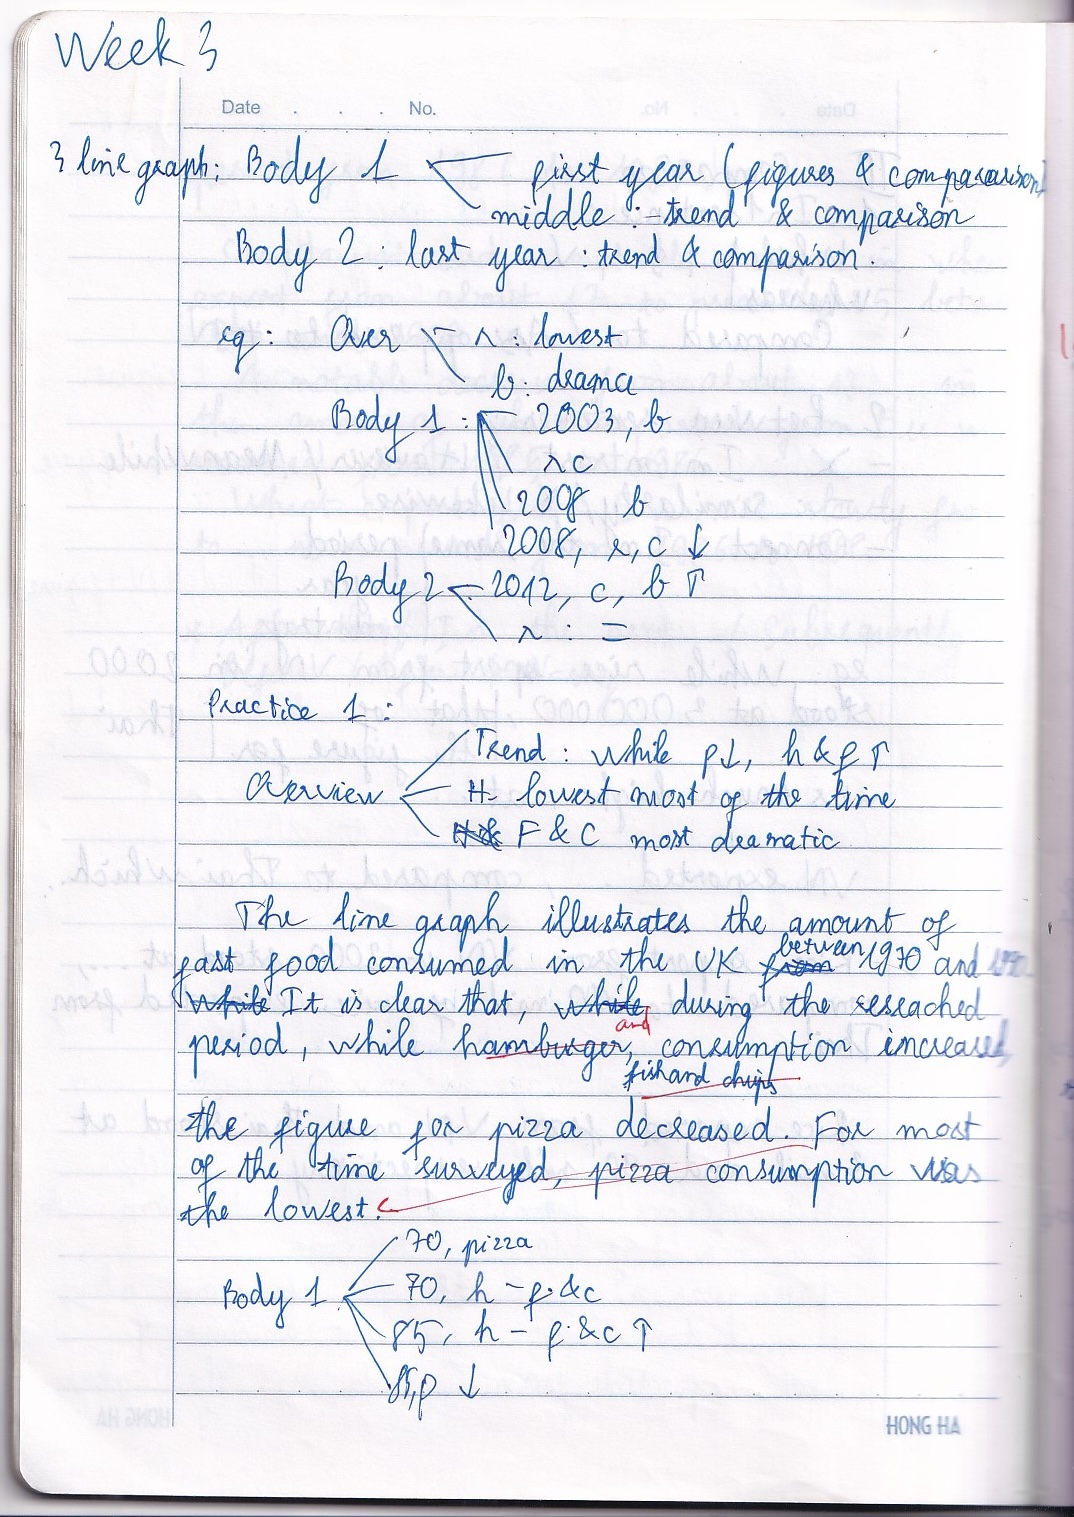 Week 3
Date . . . No.
3 line graph: Body 1 first year (figures & comparison)
middle : trend & comparison
Body 2 : last year : trend & comparison.
eg: Over r : lowest
b : drama
Body 1 : 2003, b
r c
2008 b
2008, r, c ↓
Body 2 2012, c, b ↑
r : =
Practice 1 :
Trend : while p↓, h & f ↑
Overview H- lowest most of the time
F & C most dramatic
The line graph illustrates the amount of
between
fast food consumed in the UK from 1970 and 1990
While It is clear that, while during the reseached
and
period, while hamburger, consumption increased,
fish and chips
the figure for pizza decreased. For most
of the time surveyed, pizza consumption was
the lowest.
70, pizza
Body 1 70, h - f. &c
85, h - f. &c ↑
85, p ↓
HONG HA